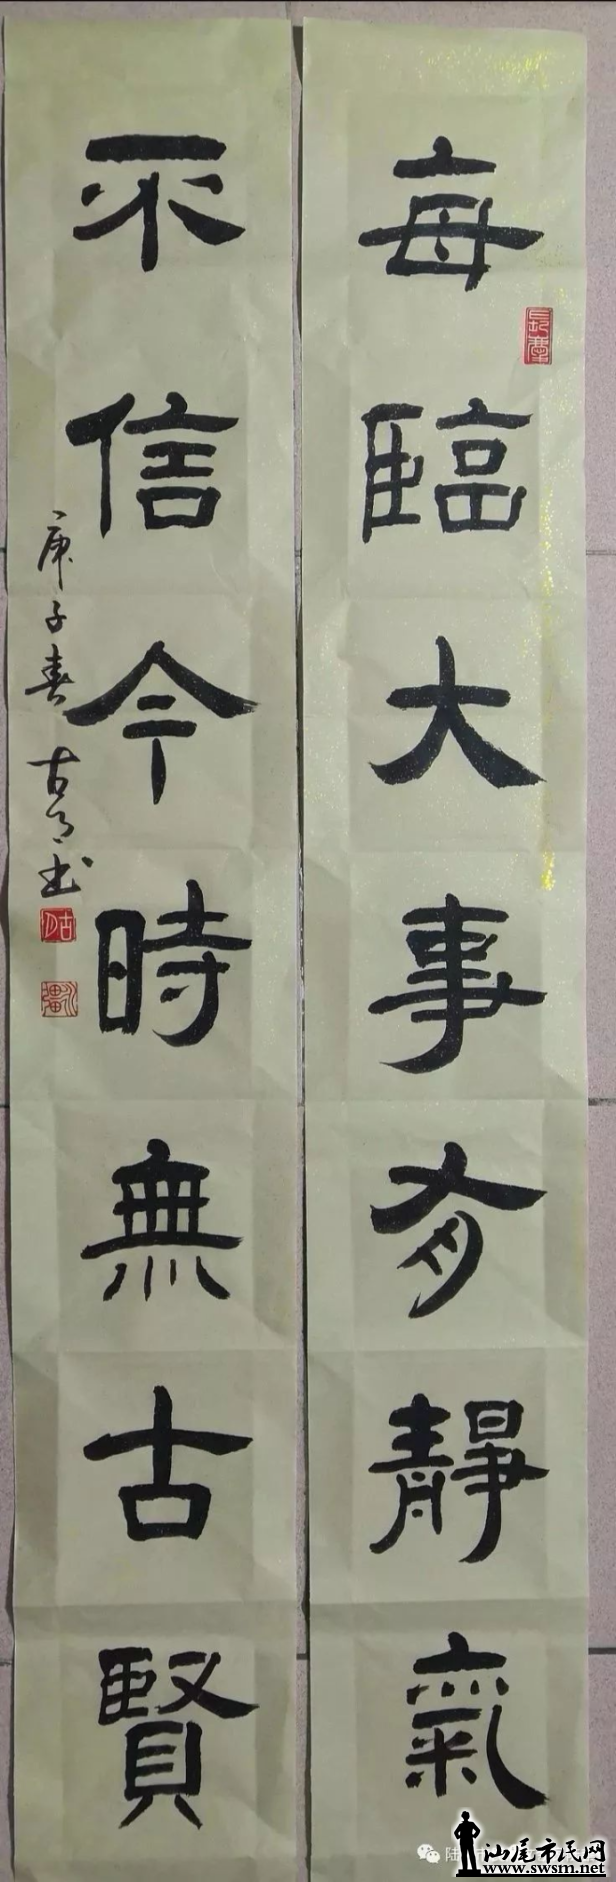 每臨大事有靜氣
不信今時無古賢
庚子春 古月書
陆
汕尾市民网
www.swsm.net